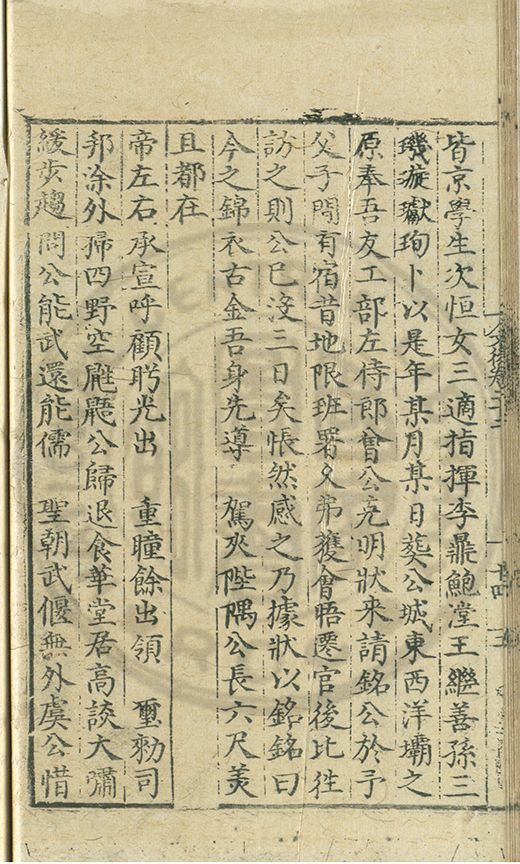 皆京學生次恒女三適指揮李鼎鮑堂王繼善孫三
璣璇瓛珣卜以是年某月某日葬公城東西洋壩之
原奉吾友工部左侍郎曾公克明狀來請銘公於予
父子間有宿昔地限班署久弗獲會晤遷官後比往
訪之則公已沒三日矣悵然感之乃據狀以銘銘曰
今之錦衣古金吾身先導 駕夾陛隅公長六尺美
且都在
帝左右承宣呼顧盻光出 重瞳餘出領 璽勑司
邦塗外掃四野空鼪鼯公歸退食華堂居高談大彌
緩步趨問公能武還能儒 聖朝武偃無外虞公惜